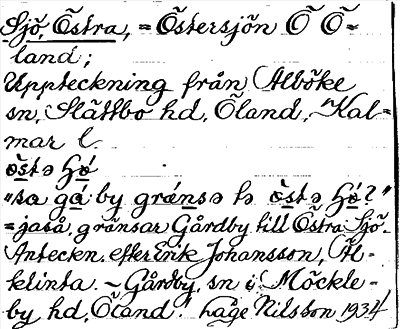 Sjö, Östra, = Östersjön Ö Ö-
land;
Uppteckning från Alböke
sn, Slättbo hd, Öland, Kal=
mar l.
östə
"sa gá by gränsə
= jaså, gränsar Gårdby till Östra Sjö.
Anteckn. efter Erik Johansson, Äl-
klinta. - Gårdby, sn i Möckle-
by hd, Öland. Låge Nilsson 1934